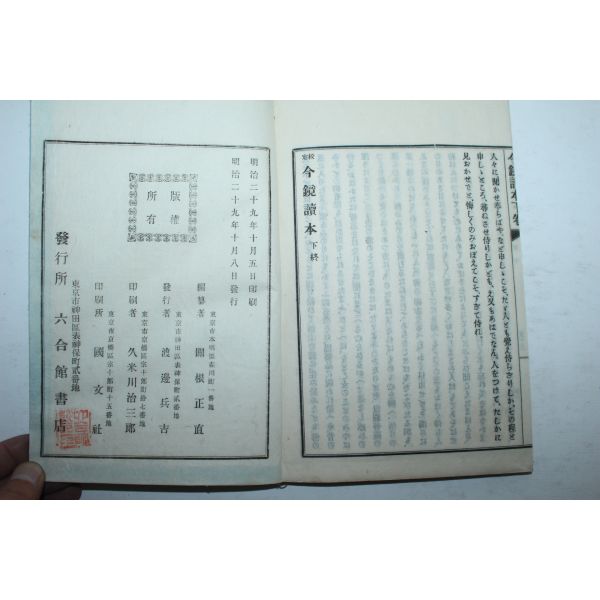 今鏡讀本下卷
人々に聞かせ奉らばや、など申しゝこそ、たど人とも覺え侍らざりしか、その程と
申しゝところ、尋ねさせ侍りしかども、え又もあはでなん、人をつけて、たしかに
見おかせでと、悔しくのみおぼえてこそ、すぎて侍れ、
校定 今鏡讀本 下終
明治二十九年十月五日印刷
明治二十九年十月八日發行
版權
所有
編纂者 關根正直
東京市神田區表神保町貳番地
發行者 渡邊兵吉
東京市京橋區宗十郎町拾七番地
印刷者 久米川治三郎
東京市京橋區宗十郎町十五番地
印刷所 國文社
東京市神田區表神保町貳番地
發行所 六合館書店